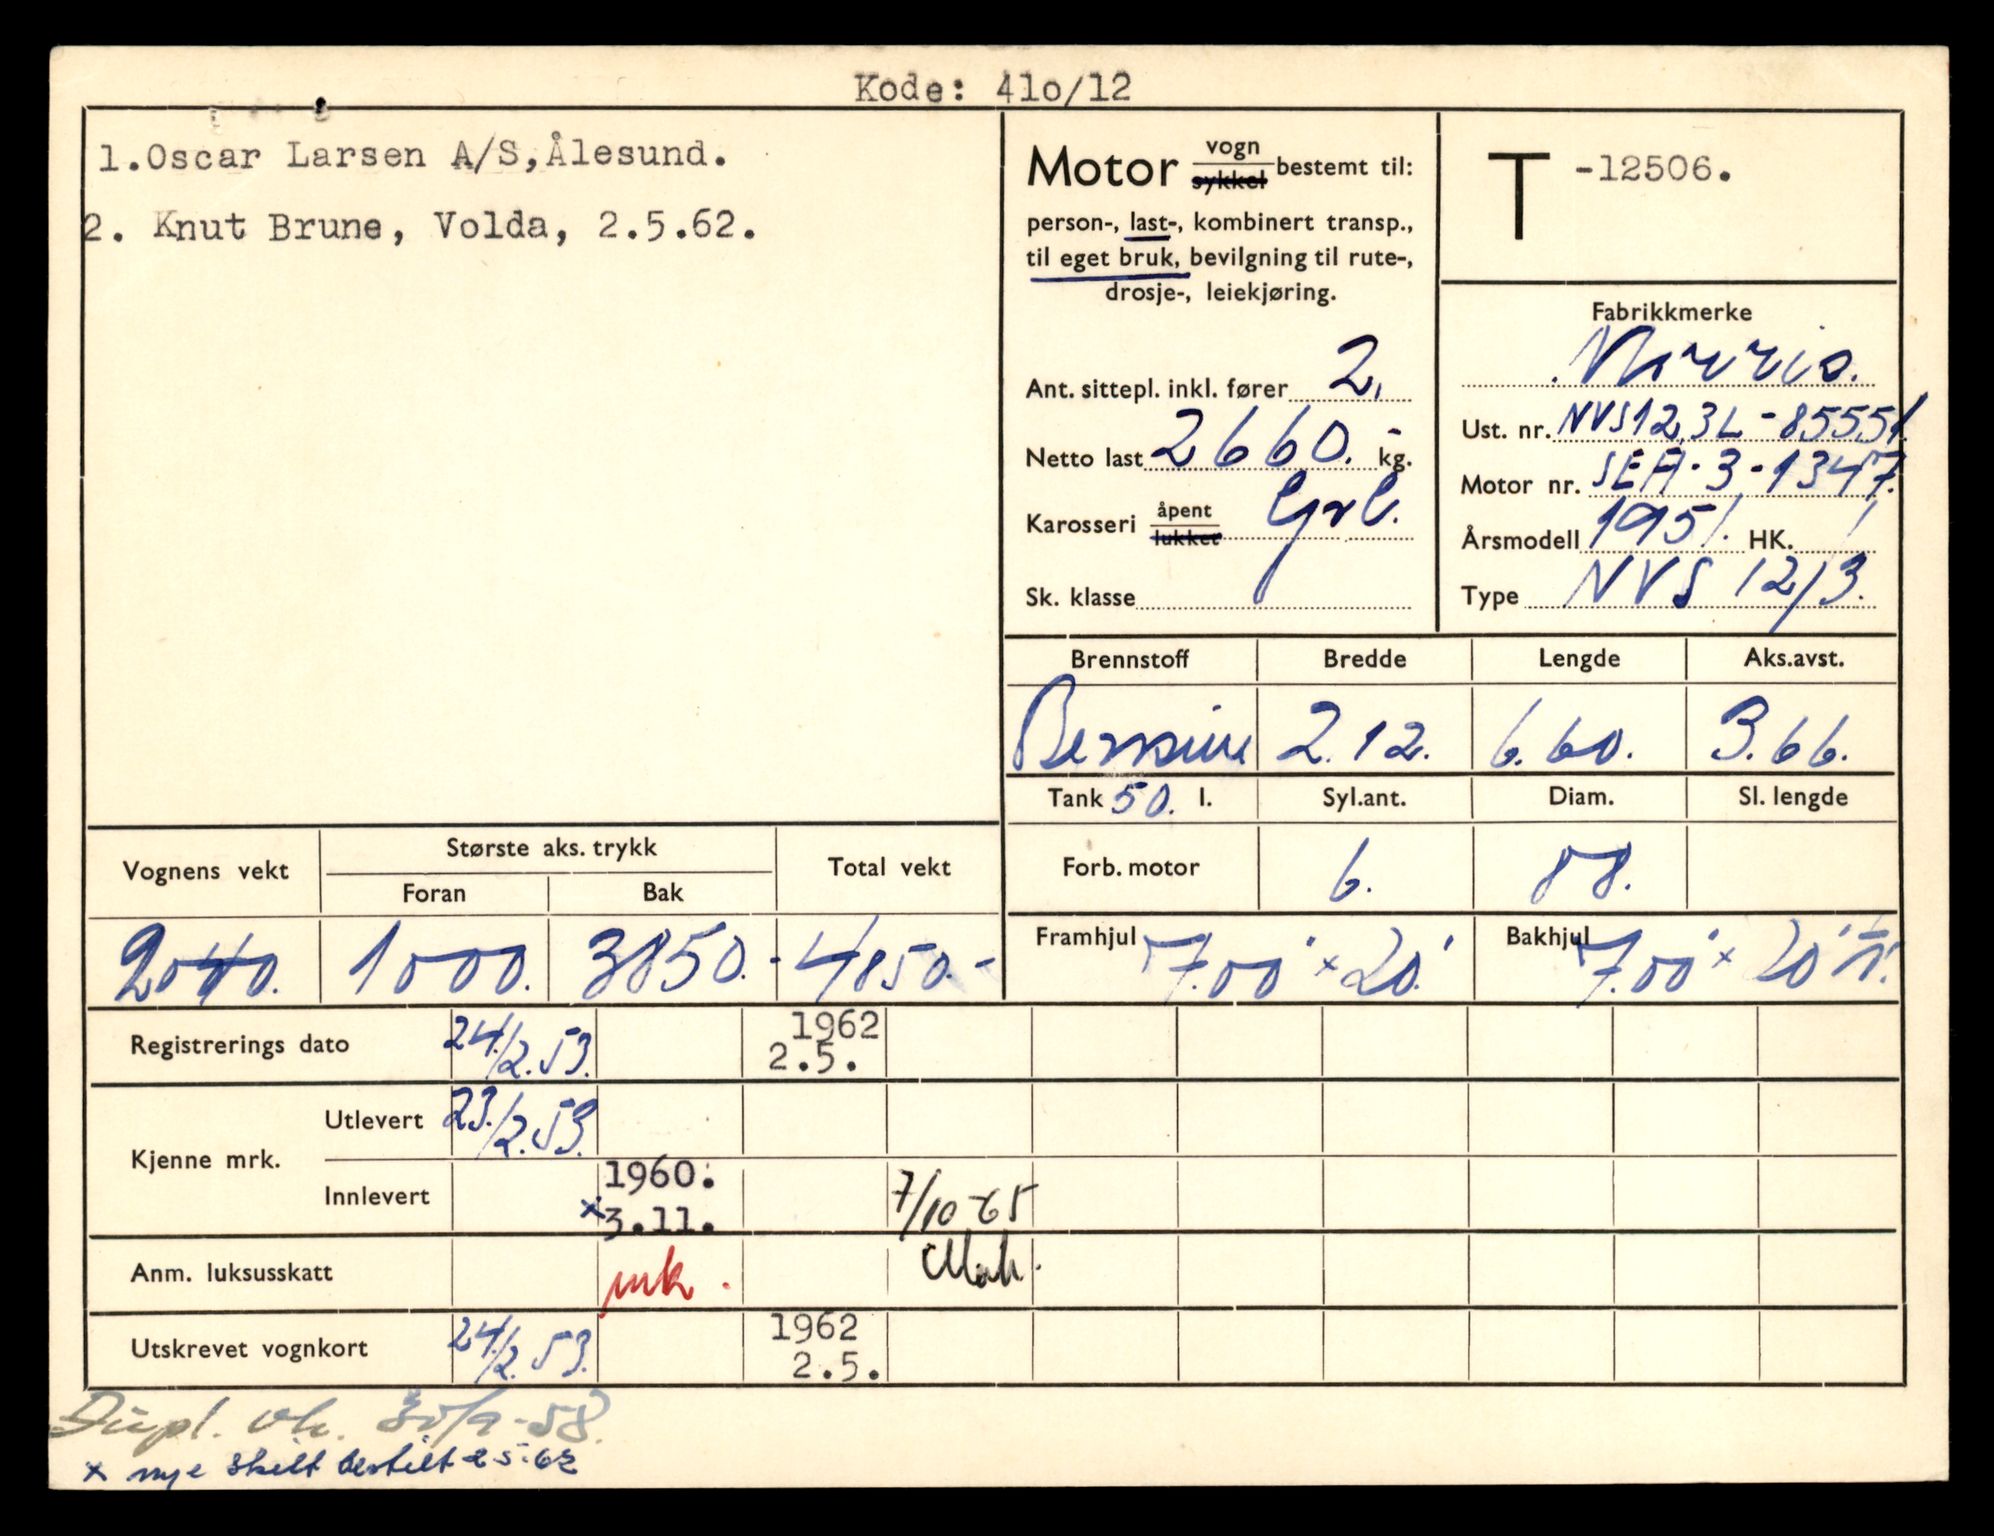 Kode: 41o/12
1.Oscar Larsen A/S,Ålesund.
2. Knut Brune, Volda, 2.5.62.
Motor vogn sykkel bestemt til:
person-, last-, kombinert transp.,
til eget bruk, bevilgning til rute-,
drosje-, leiekjøring.
Ant. sittepl. inkl. fører 2.
Netto last 2660.- kg.
Karosseri åpent lukket
Sk. klasse
T -12506.
Fabrikkmerke
Morris.
Ust. nr. NVS12.3L-85551.
Motor nr. SEA.3-1347.
Årsmodell 1951. HK. /
Type NVS 12/3.
Brennstoff Bredde Lengde Aks.avst.
Bensin 2.12. 6.60. 3.66.
Tank 50. l. Syl.ant. Diam. Sl. lengde
Forb. motor 6. 88.
Framhjul 7.00 x 20. Bakhjul 7.00 x 20
Vognens vekt Største aks. trykk Total vekt
Foran Bak
2040. 1000. 3850.- 4850.-
Registrerings dato 24/2.53. 1962 2.5.
Kjenne mrk. Utlevert 23/2.53.
Innlevert x 1960. 3.11. 7/10-65
Anm. luksusskatt mk.
Utskrevet vognkort 24/2.53. 1962 2.5.
Dupl. vk. 30/9-58.
x nye skilt bestilt 2 5.62